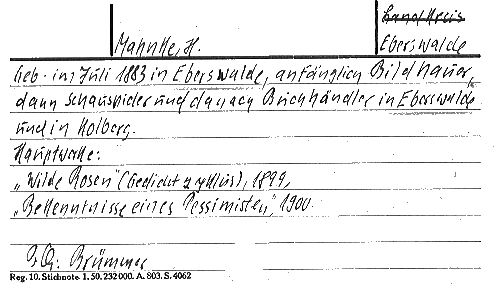 Landkreis
Mahnke, H. Eberswalde
geb. im Juli 1883 in Eberswalde, anfänglich Bildhauer,
dann Schauspieler und danach Buchhändler in Eberswalde
und in Kolberg.
Hauptwerke:
„Wilde Rosen" (Gedichtzyklus), 1899,
„Bekenntnisse eines Pessimisten", 1900.
Brümmer
Reg. 10. Stichnote. 1. 50. 232000. A. 803. S. 4062